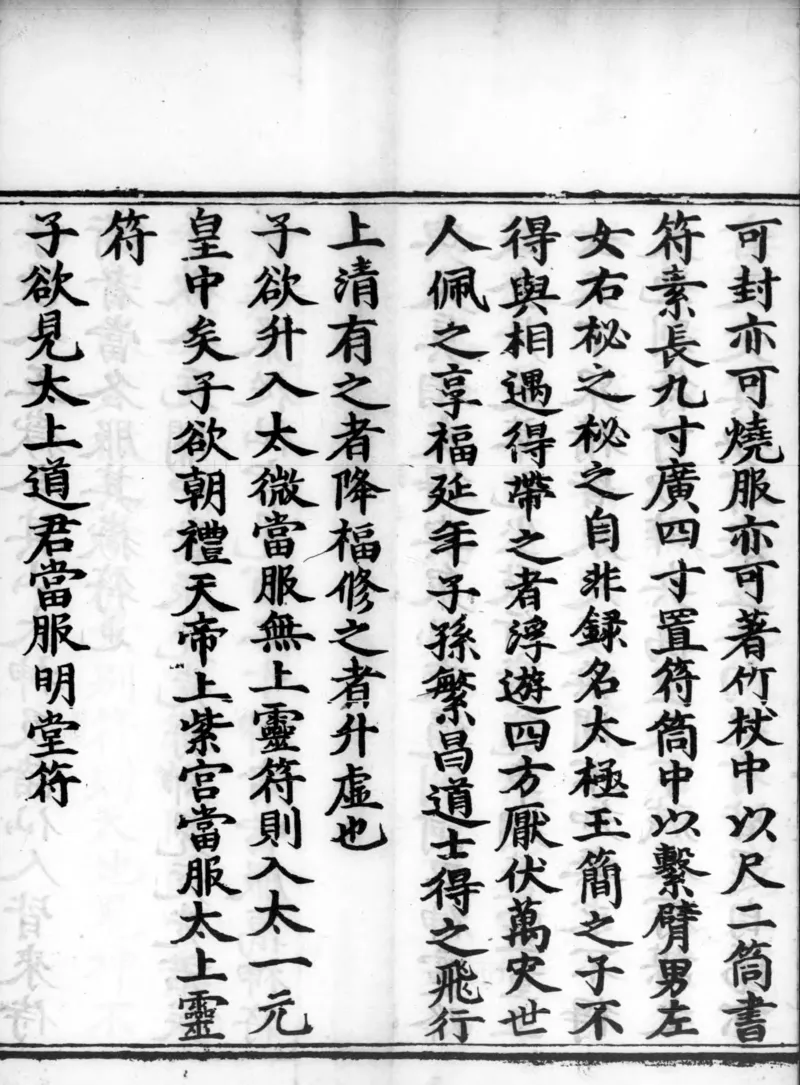 可封亦可燒服亦可著竹杖中以尺二筒書
符素長九寸廣四寸置符筒中以繫臂男左
女右秘之秘之自非録名太極玉簡之子不
得與相遇得帶之者浮遊四方厭伏萬灾世
人佩之享福延年子孫繁昌道士得之飛行
上清有之者降福修之者升虛也
子欲升入太微當服無上靈符則入太一元
皇中矣子欲朝禮天帝上紫宮當服太上靈
符
子欲見太上道君當服明堂符